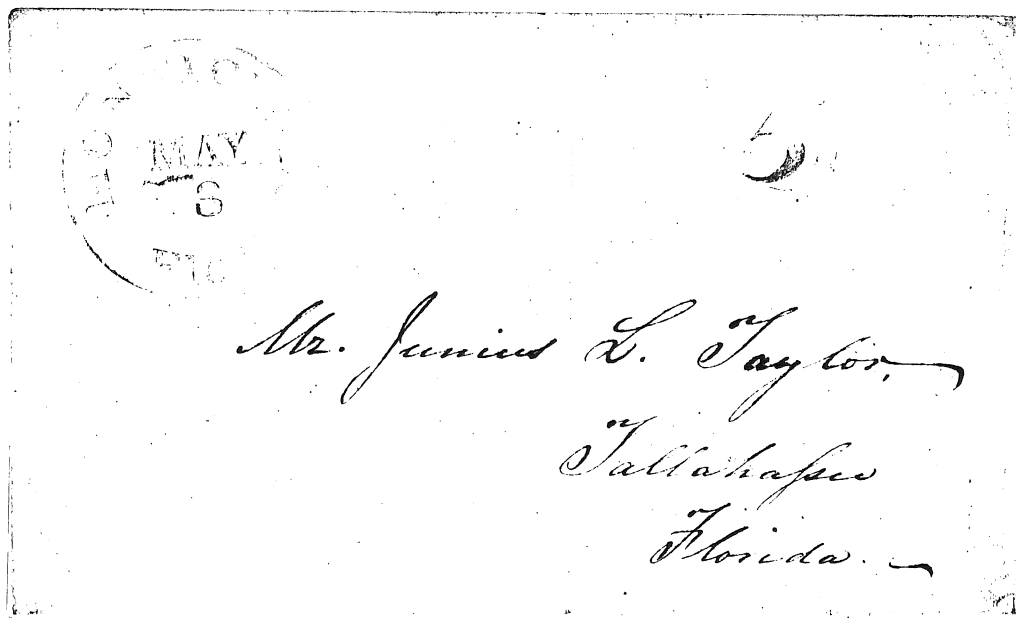 MAY
5
Mr. Junius L. Taylor,
Tallahaſsee
Florida.